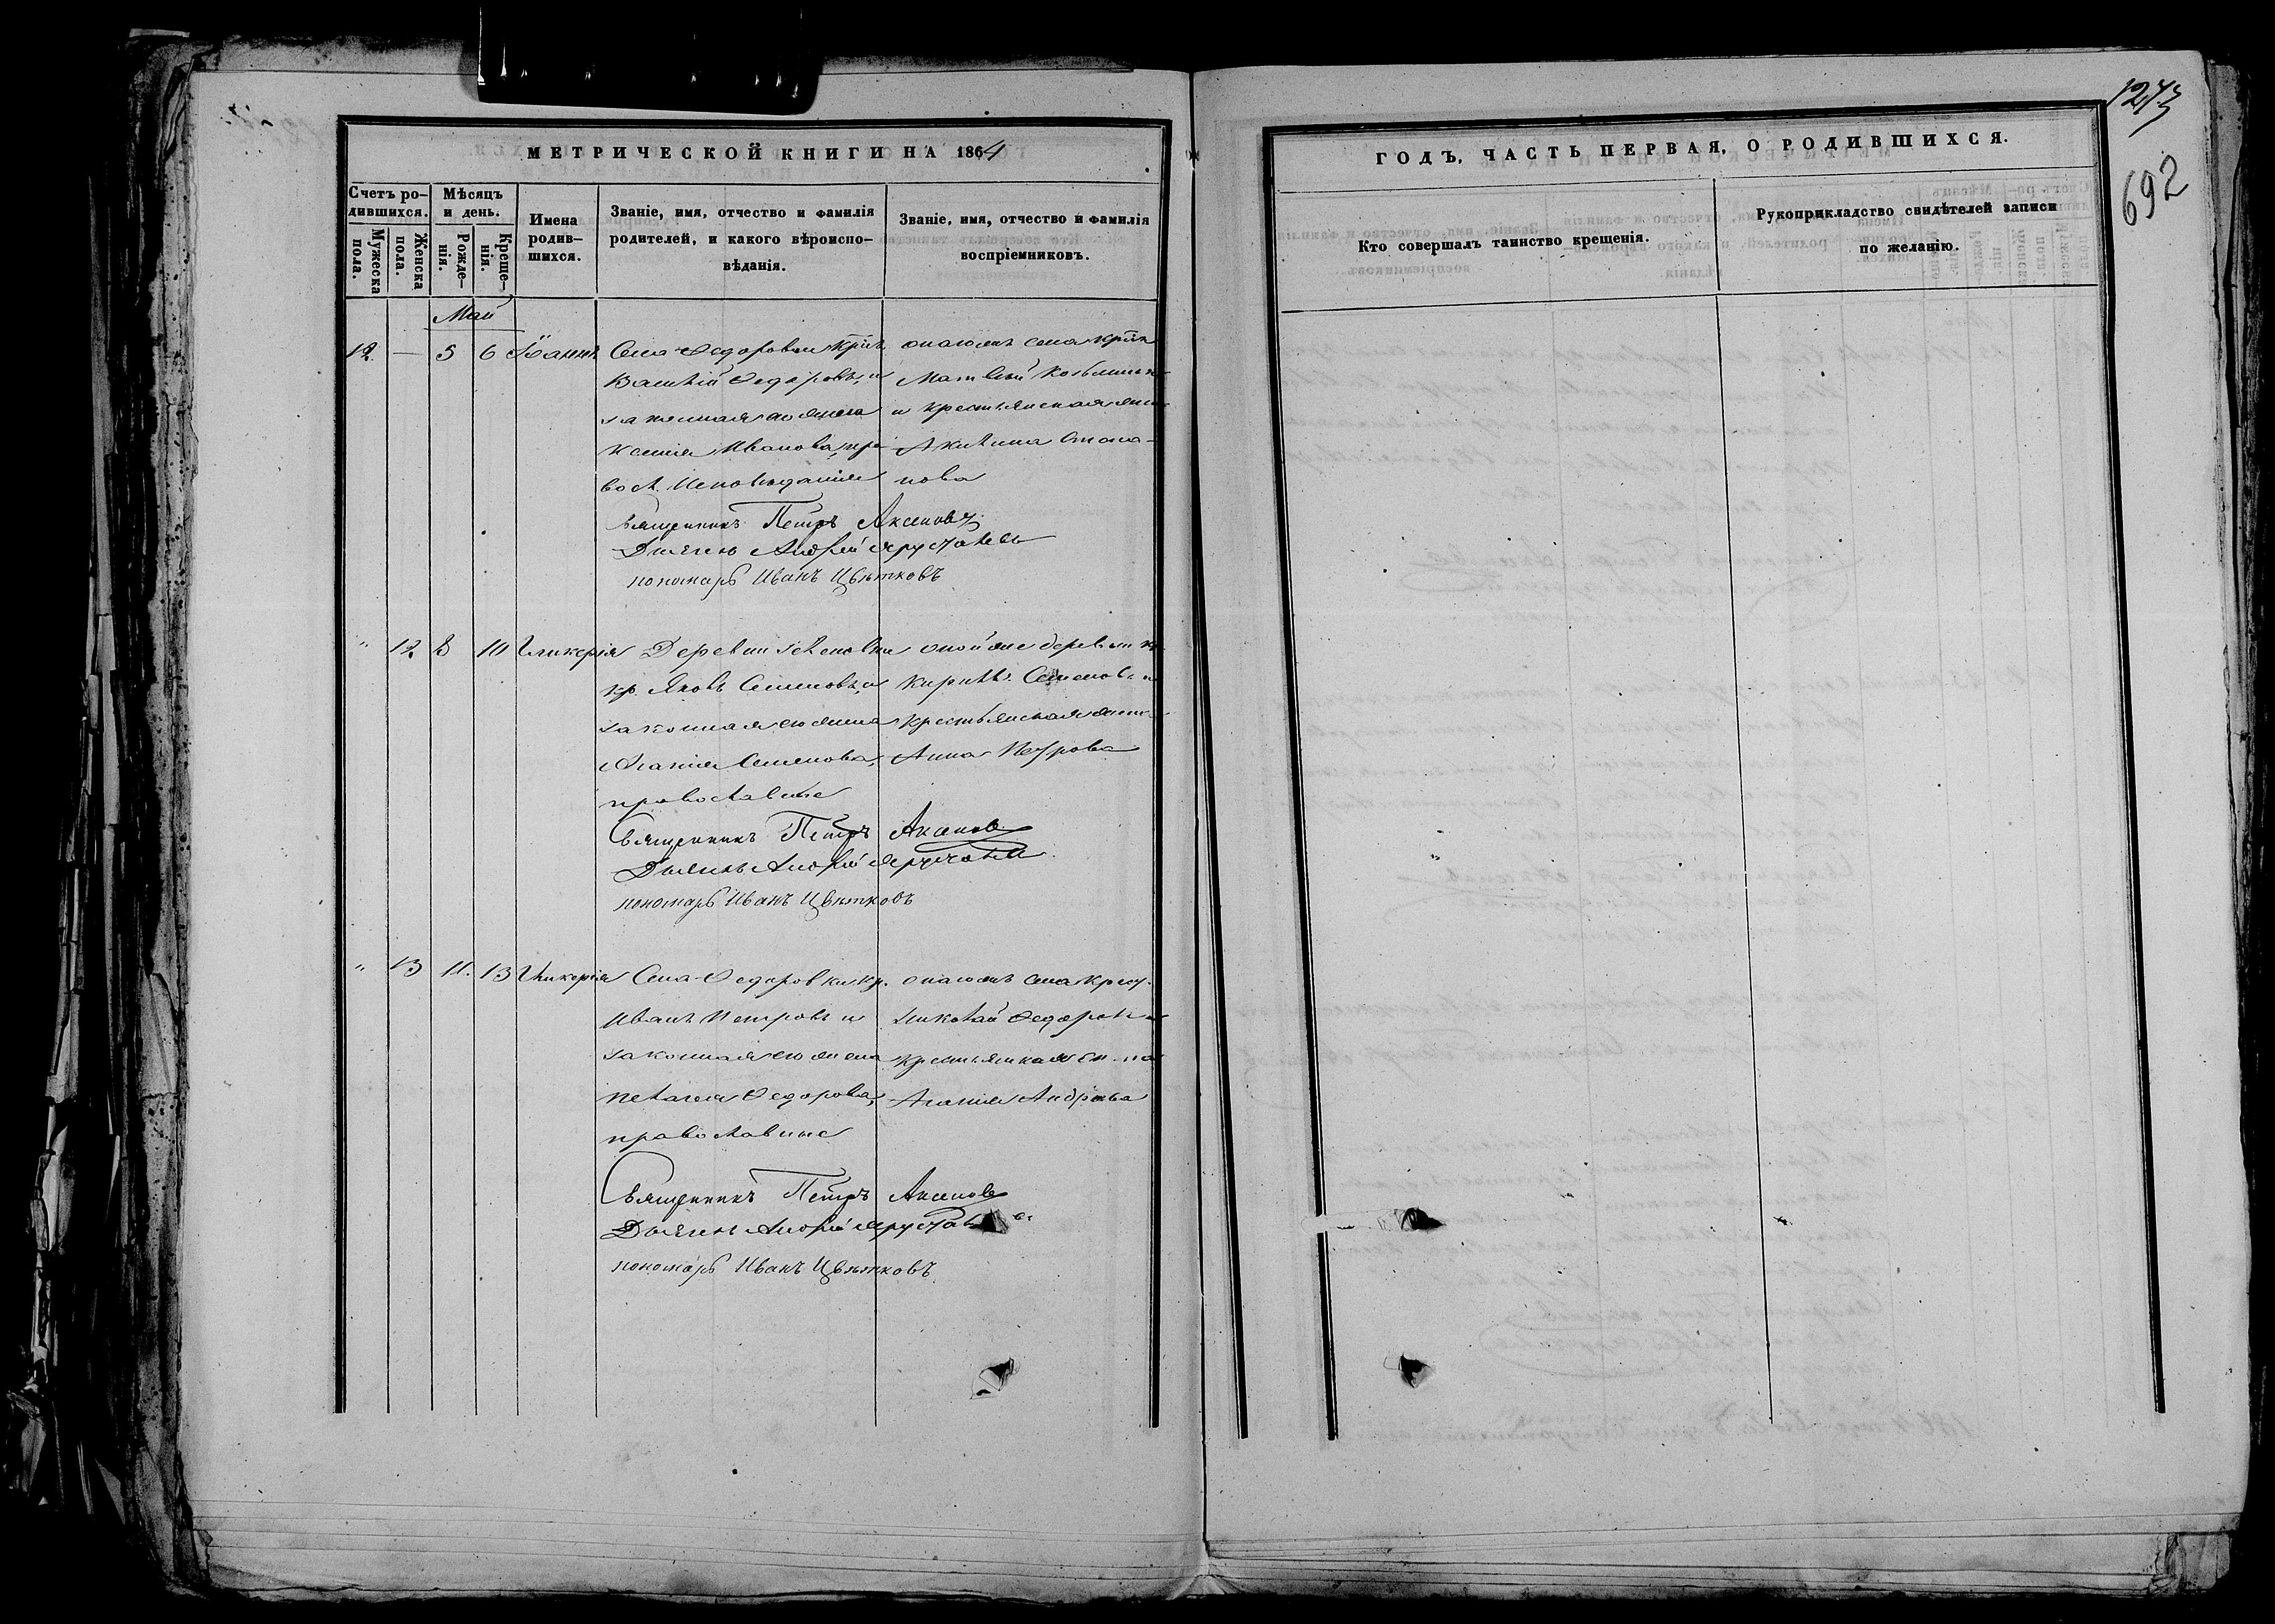 1243
692
МЕТРИЧЕСКОЙ КНИГИ НА 1864
ГОДЪ, ЧАСТЬ ПЕРВАЯ, О РОДИВШИХСЯ.
Счетъ ро-
дившихся.
Мужеска
пола.
Женска
пола.
Мѣсяцъ
и день.
Рожде-
нія.
Креще-
нія.
Имена
родив-
шихся.
Званіе, имя, отчество и фамилія
родителей, и какого вѣроиспо-
вѣданія.
Званіе, имя, отчество и фамилія
воспріемниковъ.
Кто совершалъ таинство крещенія.
Рукоприкладство свидѣтелей записи
по желанію.
Май
12. — 5 6 Іоаннъ Села Федоровки
Василій Федоровъ, и
законная его жена
Ксенія Иванова, пра-
восл. исповѣданія
тогоже села
Матвѣй Козьминъ
и крестьянская жена
Акилина Степа-
нова
Священникъ Петръ Аксеновъ
Дьячекъ Андрей
пономарь Иванъ Цвѣтковъ
" 12 8 10 Гликерія Деревни
кр. Яковъ Семеновъ, и
законная его жена
Агапія Семенова,
православные
оной же деревни
Кирилъ Семеновъ и
крестьянская жена
Анна Петрова
Священникъ Петръ Аксеновъ
Дьячекъ Андрей
пономарь Иванъ Цвѣтковъ
" 13 11. 13 Гликерія Села Федоровки кр.
Иванъ Петровъ и
законная его жена
Пелагея Федорова,
православные
тогоже села крест.
Николай Федоровъ и
крестьянская
Агапія Андреева
Священникъ Петръ Аксеновъ
Дьячекъ Андрей
пономарь Иванъ Цвѣтковъ